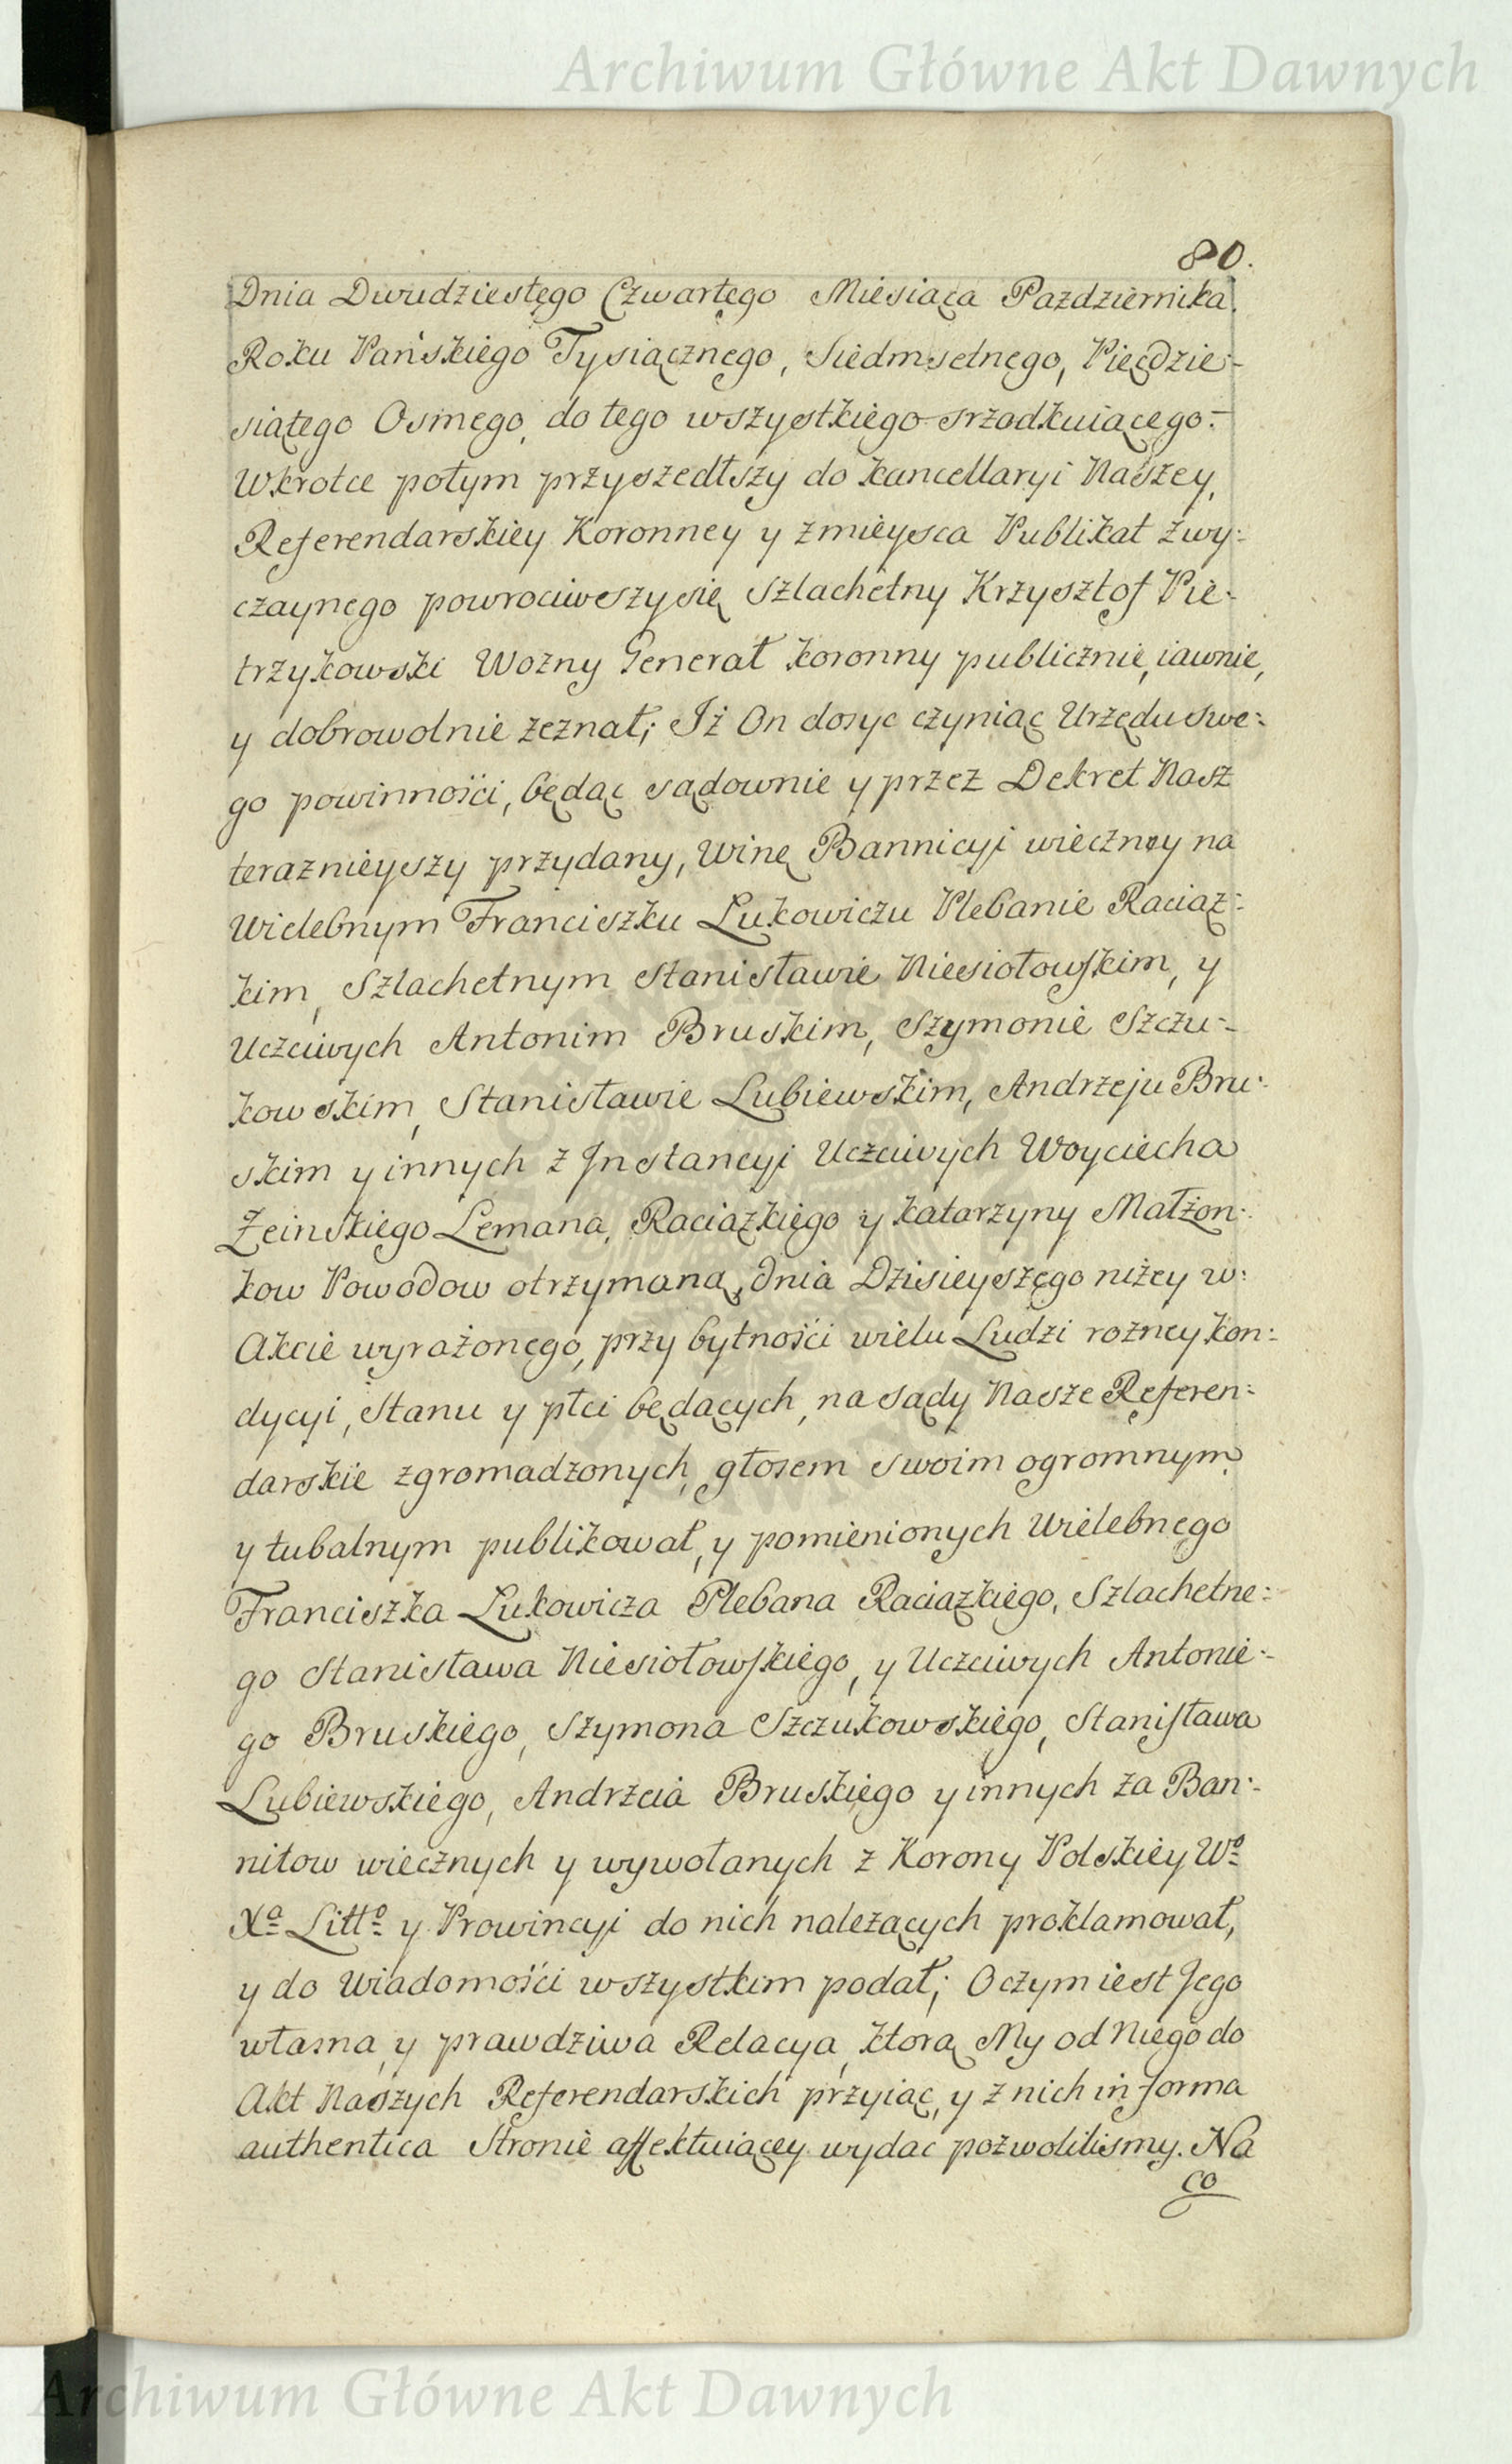 Archiwum Główne Akt Dawnych
80.
Dnia Dwudziestego Czwartego Miesiąca Pazdziernika
Roku Pańskiego Tysiącznego, Siedmsetnego, Pięcdzie-
siątego Osmego, do tego wszystkiego srzodkuiącego.-
Wkrotce potym przyszedłszy do Kancellaryi Naszey,
Referendarskiey Koronney y zmieysca Publikat zwy-
czaynego powrociwszysię Szlachetny Krzysztof Pie-
trzykowski Wozny Generał Koronny publicznie, iawnie,
y dobrowolnie zeznał; Iż On dosyc czyniąc Urzędu swe-
go powinności, będąc sądownie y przez Dekret Nasz
teraznieyszy przydany, Winę Bannicyi wieczney na
Wielebnym Franciszku Lukowiczu Plebanie Raciąz-
kim, Szlachetnym Stanisławie Niesiołowskim, y
Uczciwych Antonim Bruskim, Szymonie Szczu-
kowskim, Stanisławie Lubiewskim, Andrzeju Bru-
skim y innych z Instancyi Uczciwych Woyciecha
Zeinskiego Lemana, Raciązkiego y Katarzyny Małżon-
kow Powodow otrzymaną, dnia Dzisieyszego niżey w-
Akcie wyrażonego, przy bytności wielu Ludzi rozney kon-
dycyi, Stanu y płci będących, na sądy Nasze Referen-
darskie zgromadzonych, głosem swoim ogromnym
y tubalnym publikował, y pomienionych Wielebnego
Franciszka Lukowicza Plebana Raciązkiego, Szlachetne-
go Stanisława Niesiołowskiego, y Uczciwych Antonie-
go Bruskiego, Szymona Szczukowskiego, Stanisława
Lubiewskiego, Andrzeia Bruskiego y innych za Ban-
nitow wiecznych y wywołanych z Korony Polskiey Wº
Xª Littº y Prowincyi do nich należących proklamował,
y do Wiadomości wszystkim podał; O czym iest Jego
własna, y prawdziwa Relacya, ktorą My od Niego do
Akt Naszych Referendarskich przyiąc, y z nich in forma
authentica Stronie affektuiącey wydac pozwolilismy. Na
co
Archiwum Główne Akt Dawnych